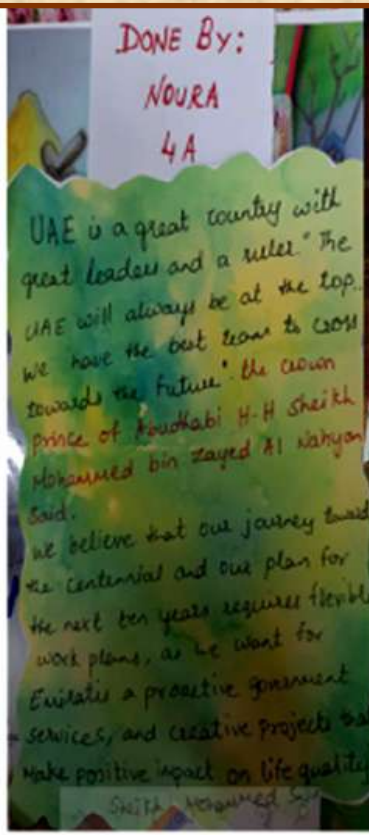 DONE BY:
NOURA
4A
UAE is a great country with
great leaders and a ruler." The
UAE will always be at the top..
We have the best team to cross
towards the future". the crown
prince of Abudhabi H-H Sheikh
Mohammed bin Zayed Al Nahyan
Said.
We believe that our journey toward
the centennial and our plan for
the next ten years requires flexible
work plans, as we want for
Emiratis a proactive government
services, and creative projects that
Make positive impact on life quality
Sheikh Mohammed